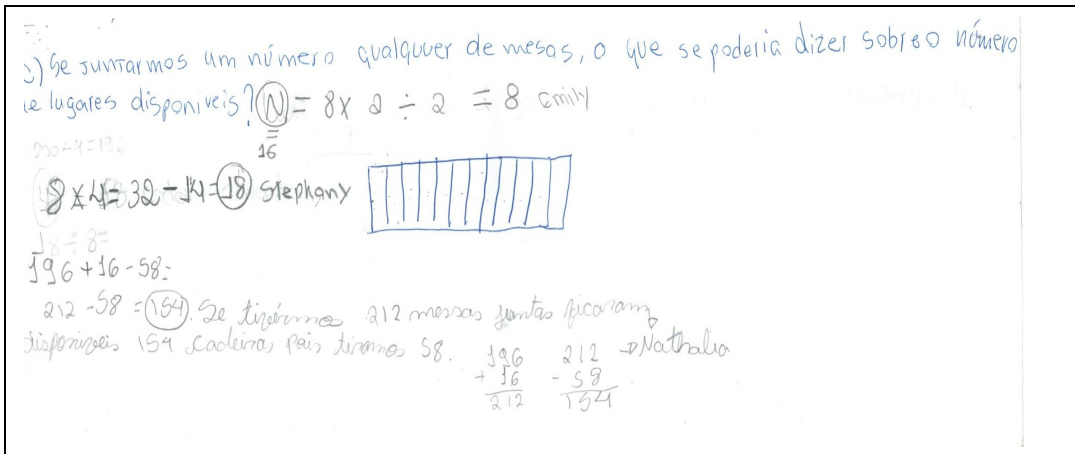 ) Se juntarmos um número qualquer de mesas, o que se poderia dizer sobre o número
de lugares disponíveis? N = 8 x 2 ÷ 2 = 8 Emily
=
16
200-4=196
8 x 4 = 32 - 14 = 18 Stephany
18 ÷ 8=
196 + 16 - 58=
212 - 58 = 154. Se tirérmos 212 messas juntas ficaram
disponiveis 154 cadeiras pois tiramos 58.
196 212 Nathalia
+ 16 - 58
212 154